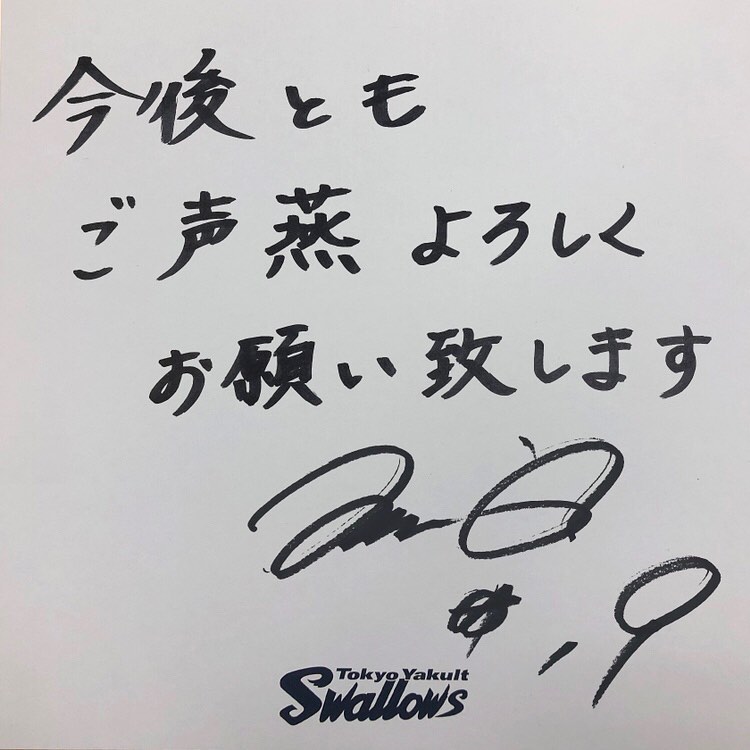 今後とも
ご声燕よろしく
お願い致します
Tokyo Yakult
Swallows